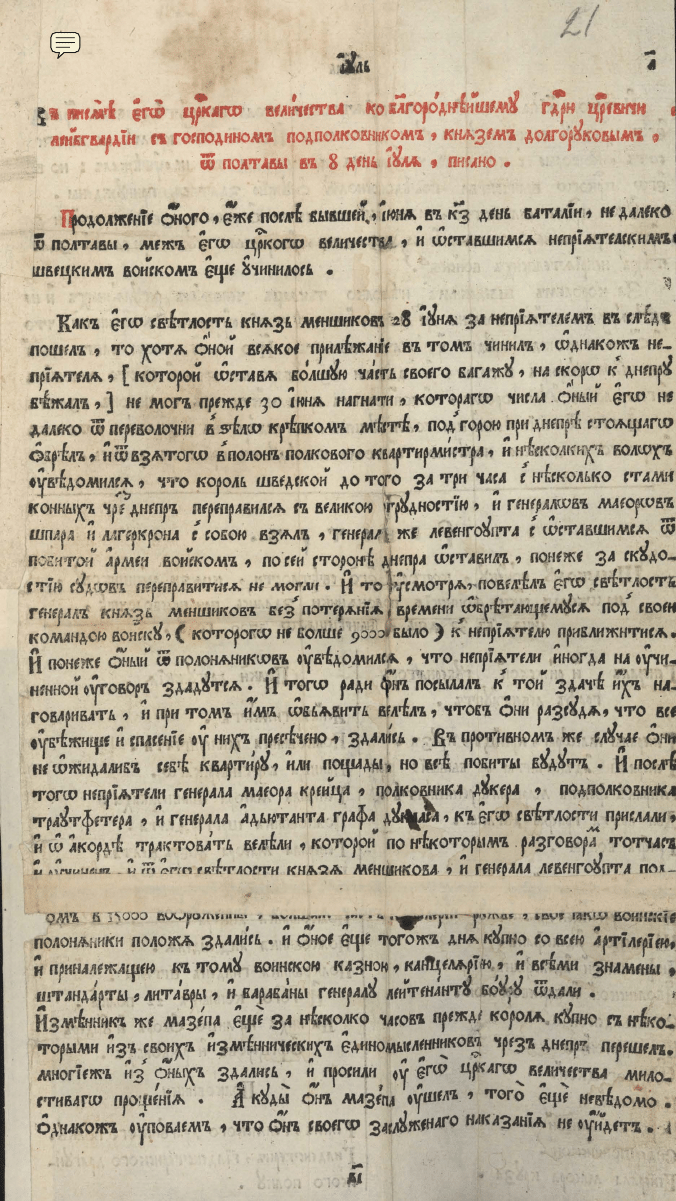 21
іꙋль
а҃
В письмѣ єгѡ црⷭ҇кагѡ величества ко благоро́днѣишему гдⷭ҇рн црⷭ҇вичи
леибгвардїи съ господиномъ подполковникомъ, княземъ долгоруковымъ,
ѿ полтавы въ 8 день іꙋля, писано.
Продолженїе ѻ҆ного, є҆же послѣ бывшеи, іюня въ к҃з день баталїи, не далеко
ѿ полтавы, межъ єгѡ црⷭ҇когѡ величества, и҆ ѡ҆ставшимся непрїятелскимъ
швецкимъ воискомъ є҆ще ꙋ҆чинилось.
Какъ єгѡ свѣтлость князь меншиковъ 28 іꙋня за непрїятелемъ въ слѣдъ
пошелъ, то хотя ѻ҆ной всякое прилѣжанїе въ томъ чинилъ, ѡ҆днакожъ не-
прїятеля, [ которой ѡ҆ставя бо́лшую ча́сть своего багажу, на скорѡ к̾ днепру
бѣжалъ, ] не могъ прежде 30 іюня нагнати, которагѡ числа ѻ҆ный єгѡ не
далеко ѿ переволочни в̾ ѕѣлѡ крѣпкомъ мѣстѣ, под̾ горою при днепрѣ стоящагѡ
ѡ҆брѣлъ, и҆ ѿ взятогѡ в̾ полонъ полкового квартирмистра, и҆ нѣсколкихъ волохъ
ᲂу҆вѣдомился, что король шведской до того за три часа с̾ нѣсколько стами
конныхъ чре́з днепръ переправился съ великою трудностїю, и҆ генералѡвъ маеорѡвъ
шпара и҆ лагеркрона с̾ собою взялъ, генерала же левенгоупта с̾ ѡ҆ставшимся ѿ
побитой армеи войскомъ, по сей сторонѣ днепра ѡ҆ставилъ, понеже за скудо-
стїю судѡвъ переправитися не могли. И҆ то ᲂу҆смотря, повелѣлъ єгѡ свѣтлость
генералъ князь меншиковъ без̾ потерянїя времени ѡ҆брѣтающемуся под̾ своеи
командою воиску, ( которогѡ не болше 9000 было ) к̾ непрїятелю приближитися.
И҆ понеже ѻ҆ный ѿ полоняникѡвъ ᲂу҆вѣдомился, что непрїятели иногда на ᲂу҆чи-
ненной ᲂу҆говоръ здадутся. И҆ тогѡ ради ѻ҆нъ посылалъ к̾ той здачѣ и҆хъ на-
говаривать, и҆ при томъ и҆мъ ѡ҆бьявить велѣлъ, чтобъ ѻ҆ни разсудя, что все
ᲂу҆бѣжище и҆ спасенїе ᲂу҆ нихъ пресѣчено, здались. Въ противномъ же случае ѻ҆ни
не ѡ҆жидалибъ себѣ кварти́ру, и҆ли пощады, но всѣ побиты будутъ. И҆ послѣ
тогѡ непрїятели генерала маеора крейца, полковника дукера, подполковника
траутфетера, и҆ генерала а҆дьютанта графа къ єгѡ свѣтлости прислали,
и҆ ѡ҆ а҆кордѣ трактовать велѣли, которой по нѣкоторымъ разговорамъ тотчасъ
и҆ ᲂу҆чиненъ, и҆ ѿ єгѡ свѣтлости князя меншикова, и҆ генерала левенгоупта
омъ в 15000
полоняники положа здались. и҆ ѻ҆ное є҆ще тогожъ дня купно со всею а҆ртілерїею,
и҆ приналежащею къ тому воинскою казною, канцелярїю, и҆ всѣми знамены,
штанда́рты, лита́вры, и҆ бараба́ны генералу леитена́нту боуру ѿдали.
И҆змѣнникъ же мазе́па є҆щѐ за нѣсколко часовъ прежде короля купно съ нѣко-
торыми и҆зъ своихъ и҆змѣнническихъ є҆диномысленниковъ чрезъ днепръ перешелъ.
многїежъ и҆з̾ ѻ҆ныхъ здались, и҆ просили ᲂу҆ єгѡ̀ црⷭ҇кагѡ величества мило-
стивагѡ проще́нїя. А҆ куды̀ ѻ҆нъ мазе́па ᲂу҆шелъ, того̀ є҆щѐ невѣдомо.
Ѻ҆днакожъ ᲂу҆поваемъ, что ѻ҆нъ своегѡ заслуженаго наказанїя не ᲂу҆йдетъ.